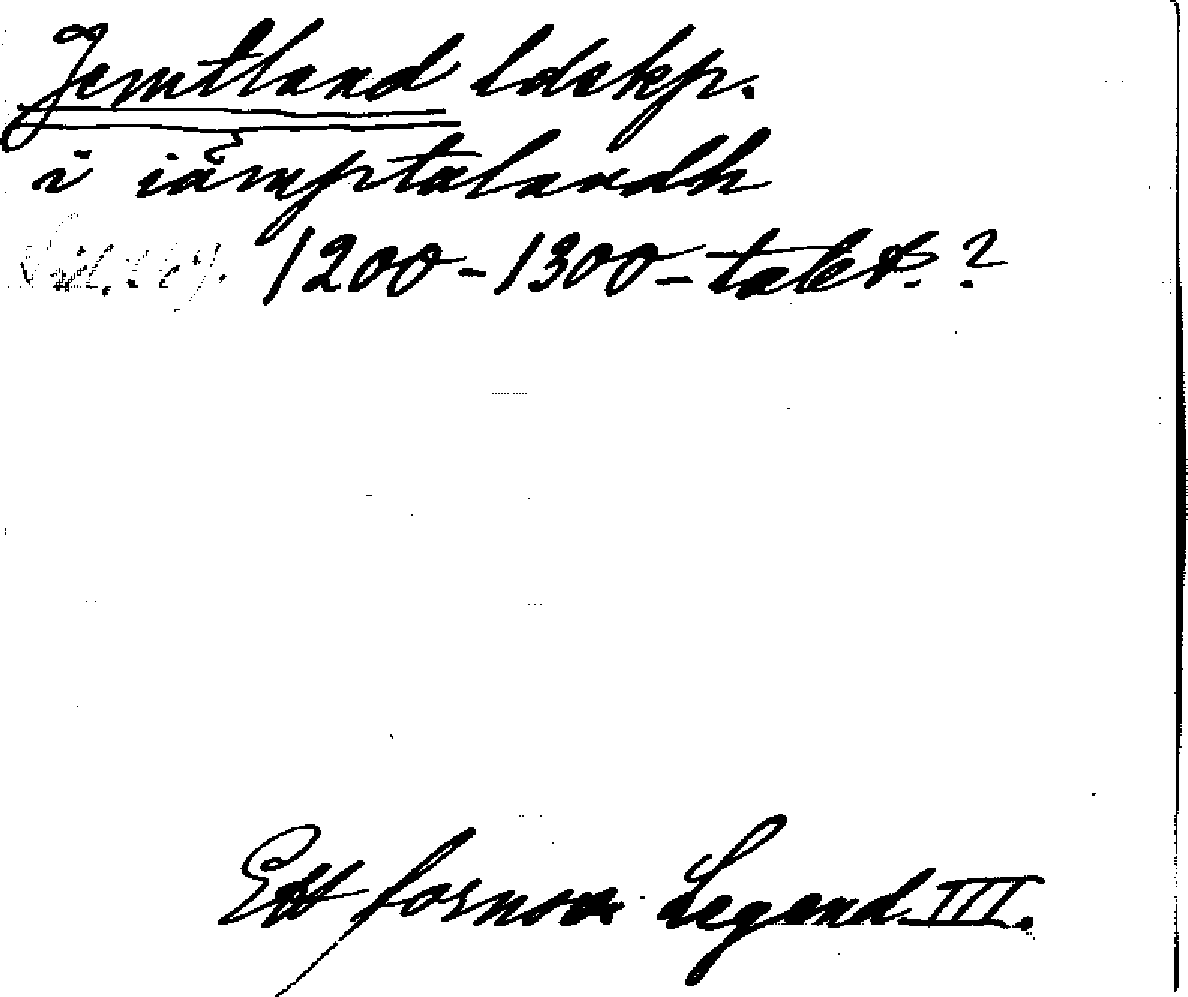 Jemtland ldskp.
i iämptalandh
1200-1300-talet?
Ett fornsv. Legend. III.